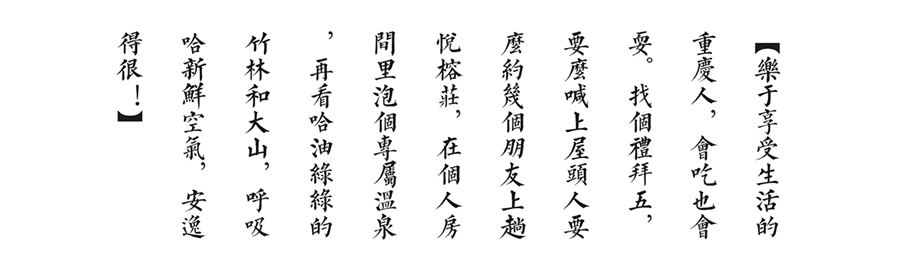 【樂于享受生活的
重慶人，會吃也會
耍。找個禮拜五，
要麼喊上屋頭人要
麼約幾個朋友上趟
悅榕莊，在個人房
間里泡個專屬溫泉
，再看哈油綠綠的
竹林和大山，呼吸
哈新鮮空氣，安逸
得很！】